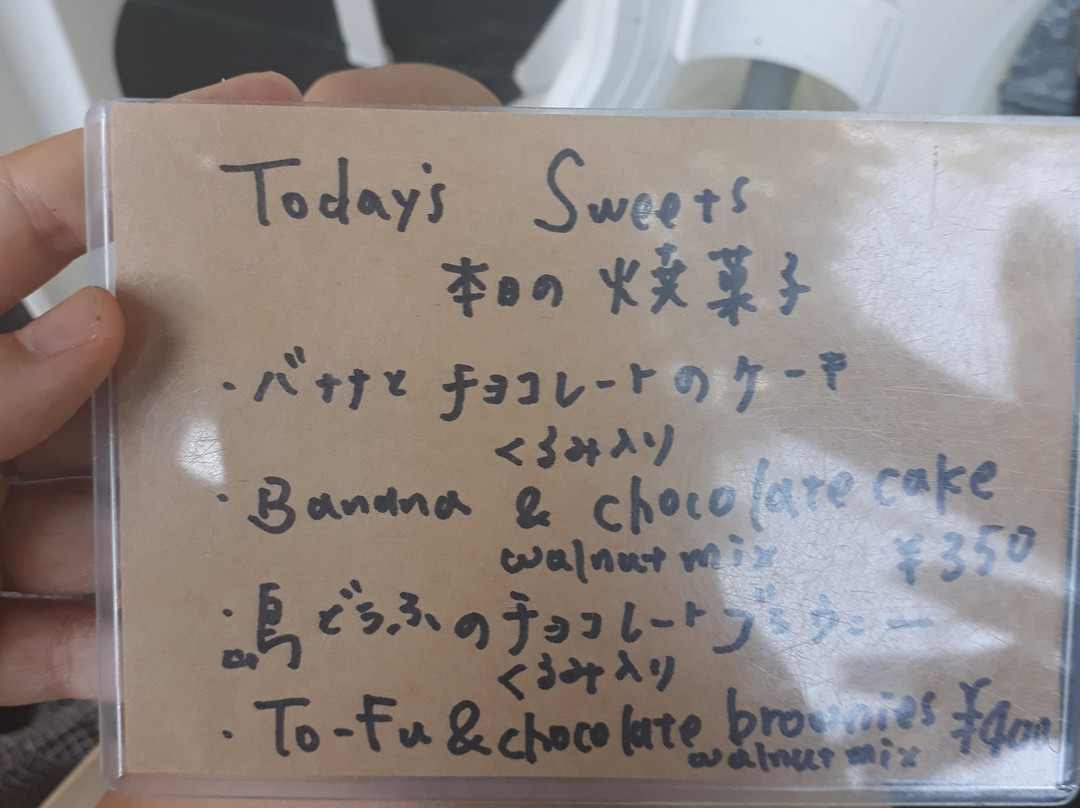 Today's Sweets
本日の焼菓子
・バナナとチョコレートのケーキ
くるみ入り
・Banana & chocolate cake
walnut mix ¥350
・島どうふのチョコレートブラウニー
くるみ入り
・To-Fu & chocolate brownies ¥400
walnut mix